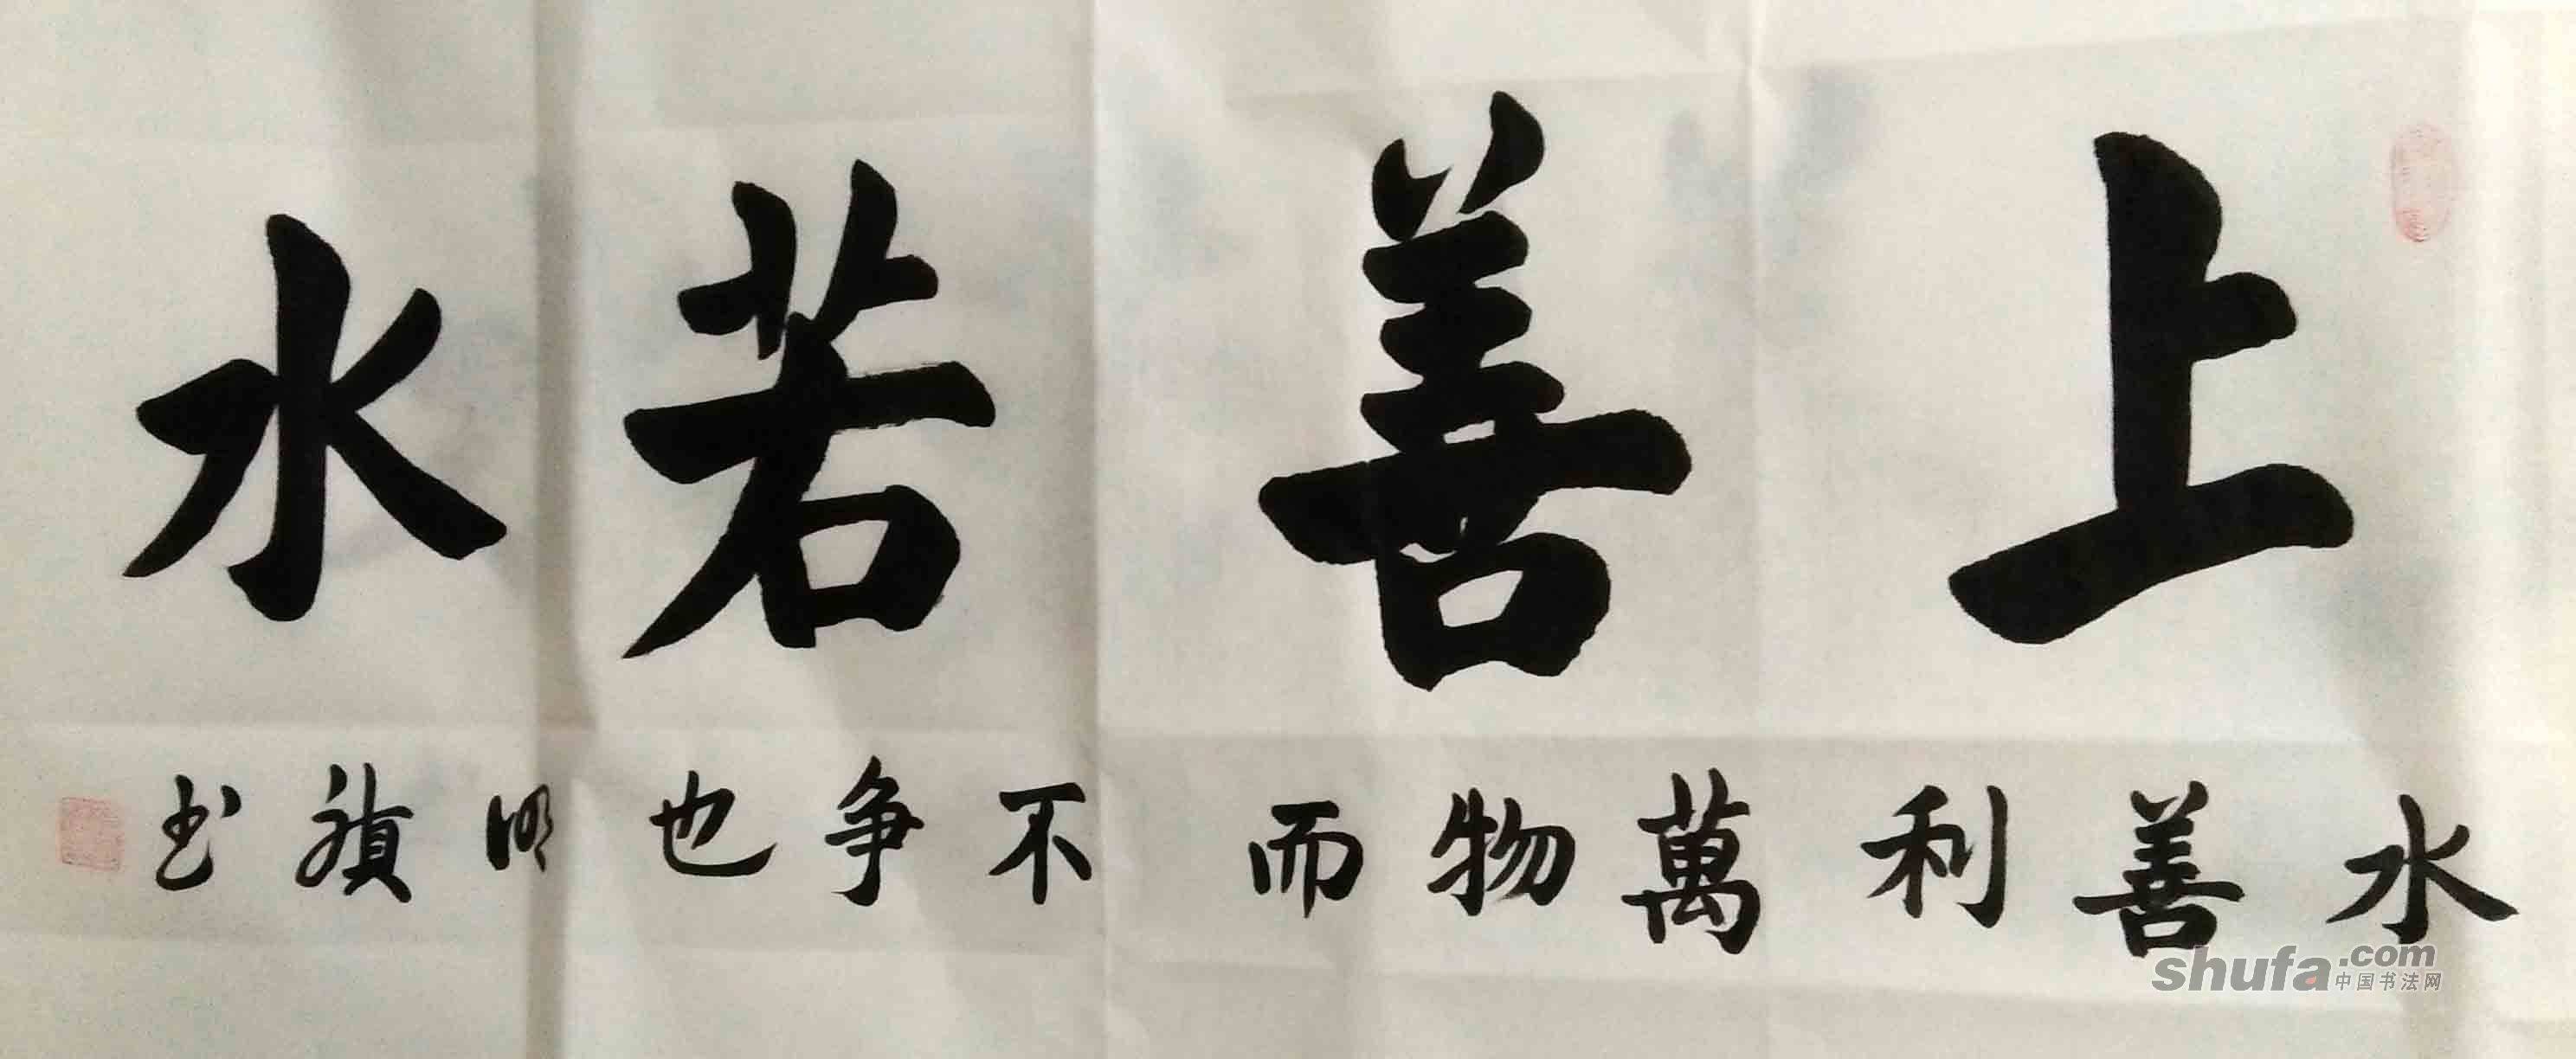 上善若水
水善利萬物而不争也明禛书
shufa.com
中国书法网